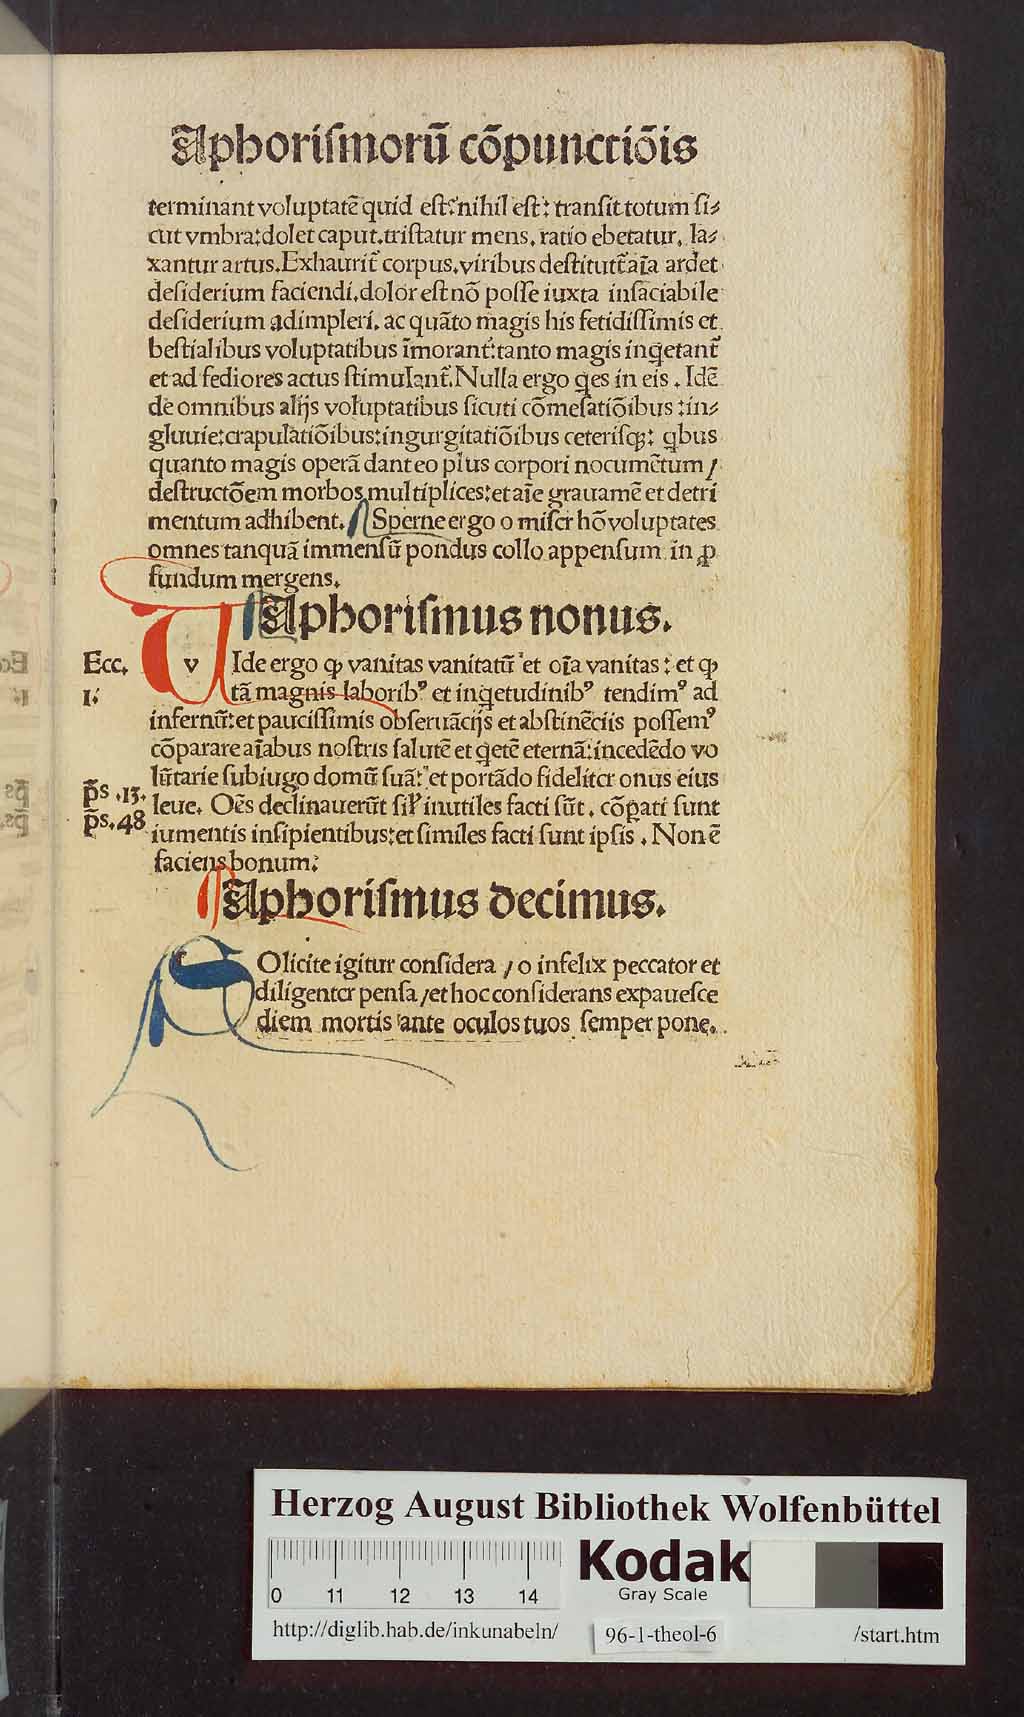 Aphoriſmorū cōpunctiōis
terminant voluptatē quid eſt: nihil eſt: tranſit totum ſi⸗
cut vmbra: dolet caput. triſtatur mens. ratio ebetatur. la⸗
xantur artus. Exhaurit᷑ corpus. viribus deſtitutt᷑ aīa ardet
deſiderium faciendi. dolor eſt nō poſſe iuxta inſaciabile
deſiderium adimpleri. ac quāto magis his fetidiſſimis et
beſtialibus voluptatibus īmorant᷑: tanto magis inq̇etant᷑
et ad fediores actus ſtimulant᷑. Nulla ergo q̇es in eis. Idē
de omnibus alijs voluptatibus ſicuti cōmeſatiōibus: in⸗
gluuie: crapulatiōibus: ingurgitatiōibus ceteriſqꝫ: q̇bus
quanto magis operā dant eo plus corpori nocumētum /
deſtructōem morbos multiplices: et aīe grauamē et detri
mentum adhibent. Sperne ergo o miſer hō voluptates
omnes tanquā immenſū pondus collo appenſum in ꝓ
fundum mergens.
Aphoriſmus nonus.
Ecc. v Ide ergo ꝙ vanitas vanitatū et oīa vanitas: et ꝙ
1. tā magnis laboribꝰ et inq̇etudinibꝰ tendimꝰ ad
infernū: et pauciſſimis obſeruācijs et abſtinēciis poſſemꝰ
cōparare aīabus noſtris ſalutē et q̇etē eternā: incedēdo vo
lūtarie ſubiugo domū ſuā: et portādo fideliter onus eius
p̄s .13. leue. Oēs declinauerūt ſil̓ inutiles facti ſūt. cōꝑati ſunt
p̄s. 48 iumentis inſipientibus: et ſimiles facti ſunt ipſis. Non ē
faciens bonum:
Aphoriſmus decimus.
SOlicite igitur conſidera / o infelix peccator et
diligenter penſa / et hoc conſiderans expaueſce
diem mortis ante oculos tuos ſemper pone.
Herzog August Bibliothek Wolfenbüttel
0 11 12 13 14
Kodak
Gray Scale
http://diglib.hab.de/inkunabeln/ 96-1-theol-6 /start.htm